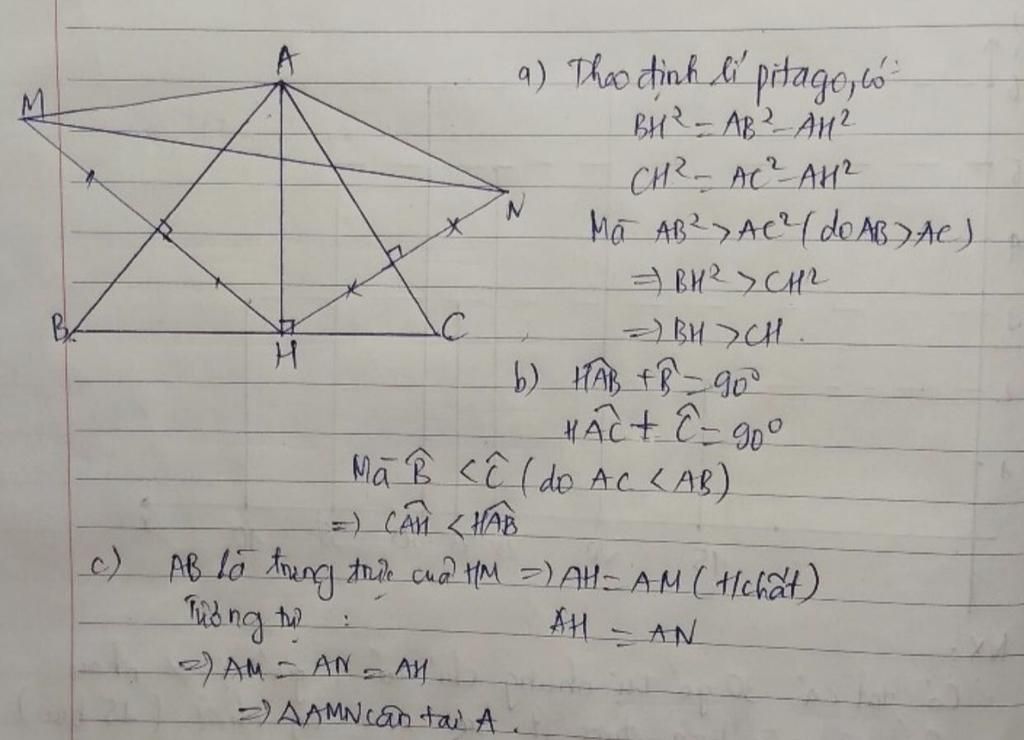 A
M
N
B
H
C
a) Theo định lí pitago, có:
BH² = AB² - AH²
CH² = AC² - AH²
Mà AB² > AC² (do AB > AC)
=> BH² > CH²
=> BH > CH.
b) HÂB + B̂ = 90°
HÂC + Ĉ = 90°
Mà B̂ < Ĉ (do AC < AB)
=> CÂH < HÂB
c) AB là trung trực của HM => AH = AM (t/chất)
Tương tự : AH = AN
=> AM = AN = AH
=> ΔAMN cân tại A.